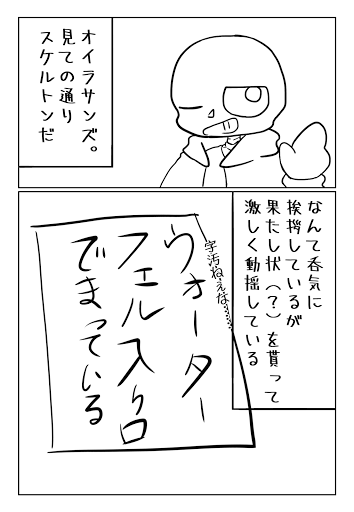 オイラサンズ。
見ての通り
スケルトンだ
なんて呑気に
挨拶しているが
果たし状（？）を貰って
激しく動揺している
字汚ねえな……
ウォーター
フェル入り口
でまっている